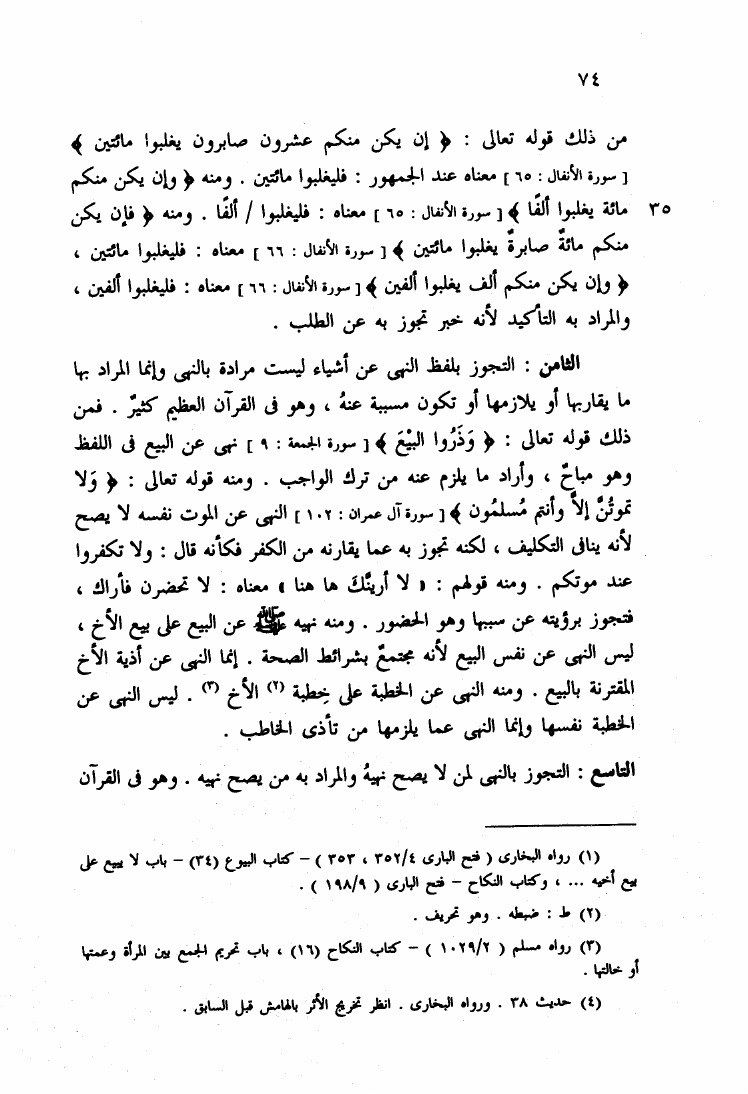 ٧٤
من ذلك قوله تعالى : ﴿ إن يكن منكم عشرون صابرون يغلبوا مائتين ﴾
[ سورة الأنفال : ٦٥ ] معناه عند الجمهور : فليغلبوا مائتين . ومنه ﴿ وإن يكن منكم
٣٥ مائة يغلبوا ألفًا ﴾ [ سورة الأنفال : ٦٥ ] معناه : فليغلبوا / ألفًا . ومنه ﴿ فإن يكن
منكم مائةٌ صابرةٌ يغلبوا مائتين ﴾ [ سورة الأنفال : ٦٦ ] معناه : فليغلبوا مائتين ،
﴿ وإن يكن منكم ألف يغلبوا ألفين ﴾ [ سورة الأنفال : ٦٦ ] معناه : فليغلبوا ألفين ،
والمراد به التأكيد لأنه خبر تجوز به عن الطلب .
الثامن : التجوز بلفظ النهى عن أشياء ليست مرادة بالنهى وإنما المراد بها
ما يقاربها أو يلازمها أو تكون مسببة عنهُ ، وهو فى القرآن العظيم كثيرٌ . فمن
ذلك قوله تعالى : ﴿ وَذَرُوا البَيْعَ ﴾ [ سورة الجمعة : ٩ ] نهى عن البيع فى اللفظ
وهو مباحٌ ، وأراد ما يلزم عنه من ترك الواجب . ومنه قوله تعالى : ﴿ وَلا
تموتُنَّ إلاَّ وأنتم مُسلمُون ﴾ [ سورة آل عمران : ١٠٢ ] النهى عن الموت نفسه لا يصح
لأنه ينافى التكليف ، لكنه تجوز به عما يقارنه من الكفر فكأنه قال : ولا تكفروا
عند موتكم . ومنه قولهم : « لا أرينَّكَ ها هنا » معناه : لا تحضرن فأراك ،
فتجوز برؤيته عن سببها وهو الحضور . ومنه نهيه ﷺ عن البيع على بيع الأخ ،
ليس النهى عن نفس البيع لأنه مجتمعٌ بشرائط الصحة . إنما النهى عن أذية الأخ
المقترنة بالبيع . ومنه النهى عن الخطبة على خِطبة (٢) الأخ (٣) . ليس النهى عن
الخطبة نفسها وإنما النهى عما يلزمها من تأذى الخاطب .
التاسع : التجوز بالنهى لمن لا يصح نهيهُ والمراد به من يصح نهيه . وهو فى القرآن
(١) رواه البخارى ( فتح البارى ٣٥٢/٤ ، ٣٥٣ ) – كتاب البيوع (٣٤) – باب لا يبيع على
بيع أخيه ... ، وكتاب النكاح – فتح البارى ( ١٩٨/٩ ) .
(٢) ط : ضبطه . وهو تحريف .
(٣) رواه مسلم ( ١٠٢٩/٢ ) – كتاب النكاح (١٦) ، باب تحريم الجمع بين المرأة وعمتها
أو خالتها .
(٤) حديث ٣٨ . ورواه البخارى . انظر تخريج الأثر بالهامش قبل السابق .